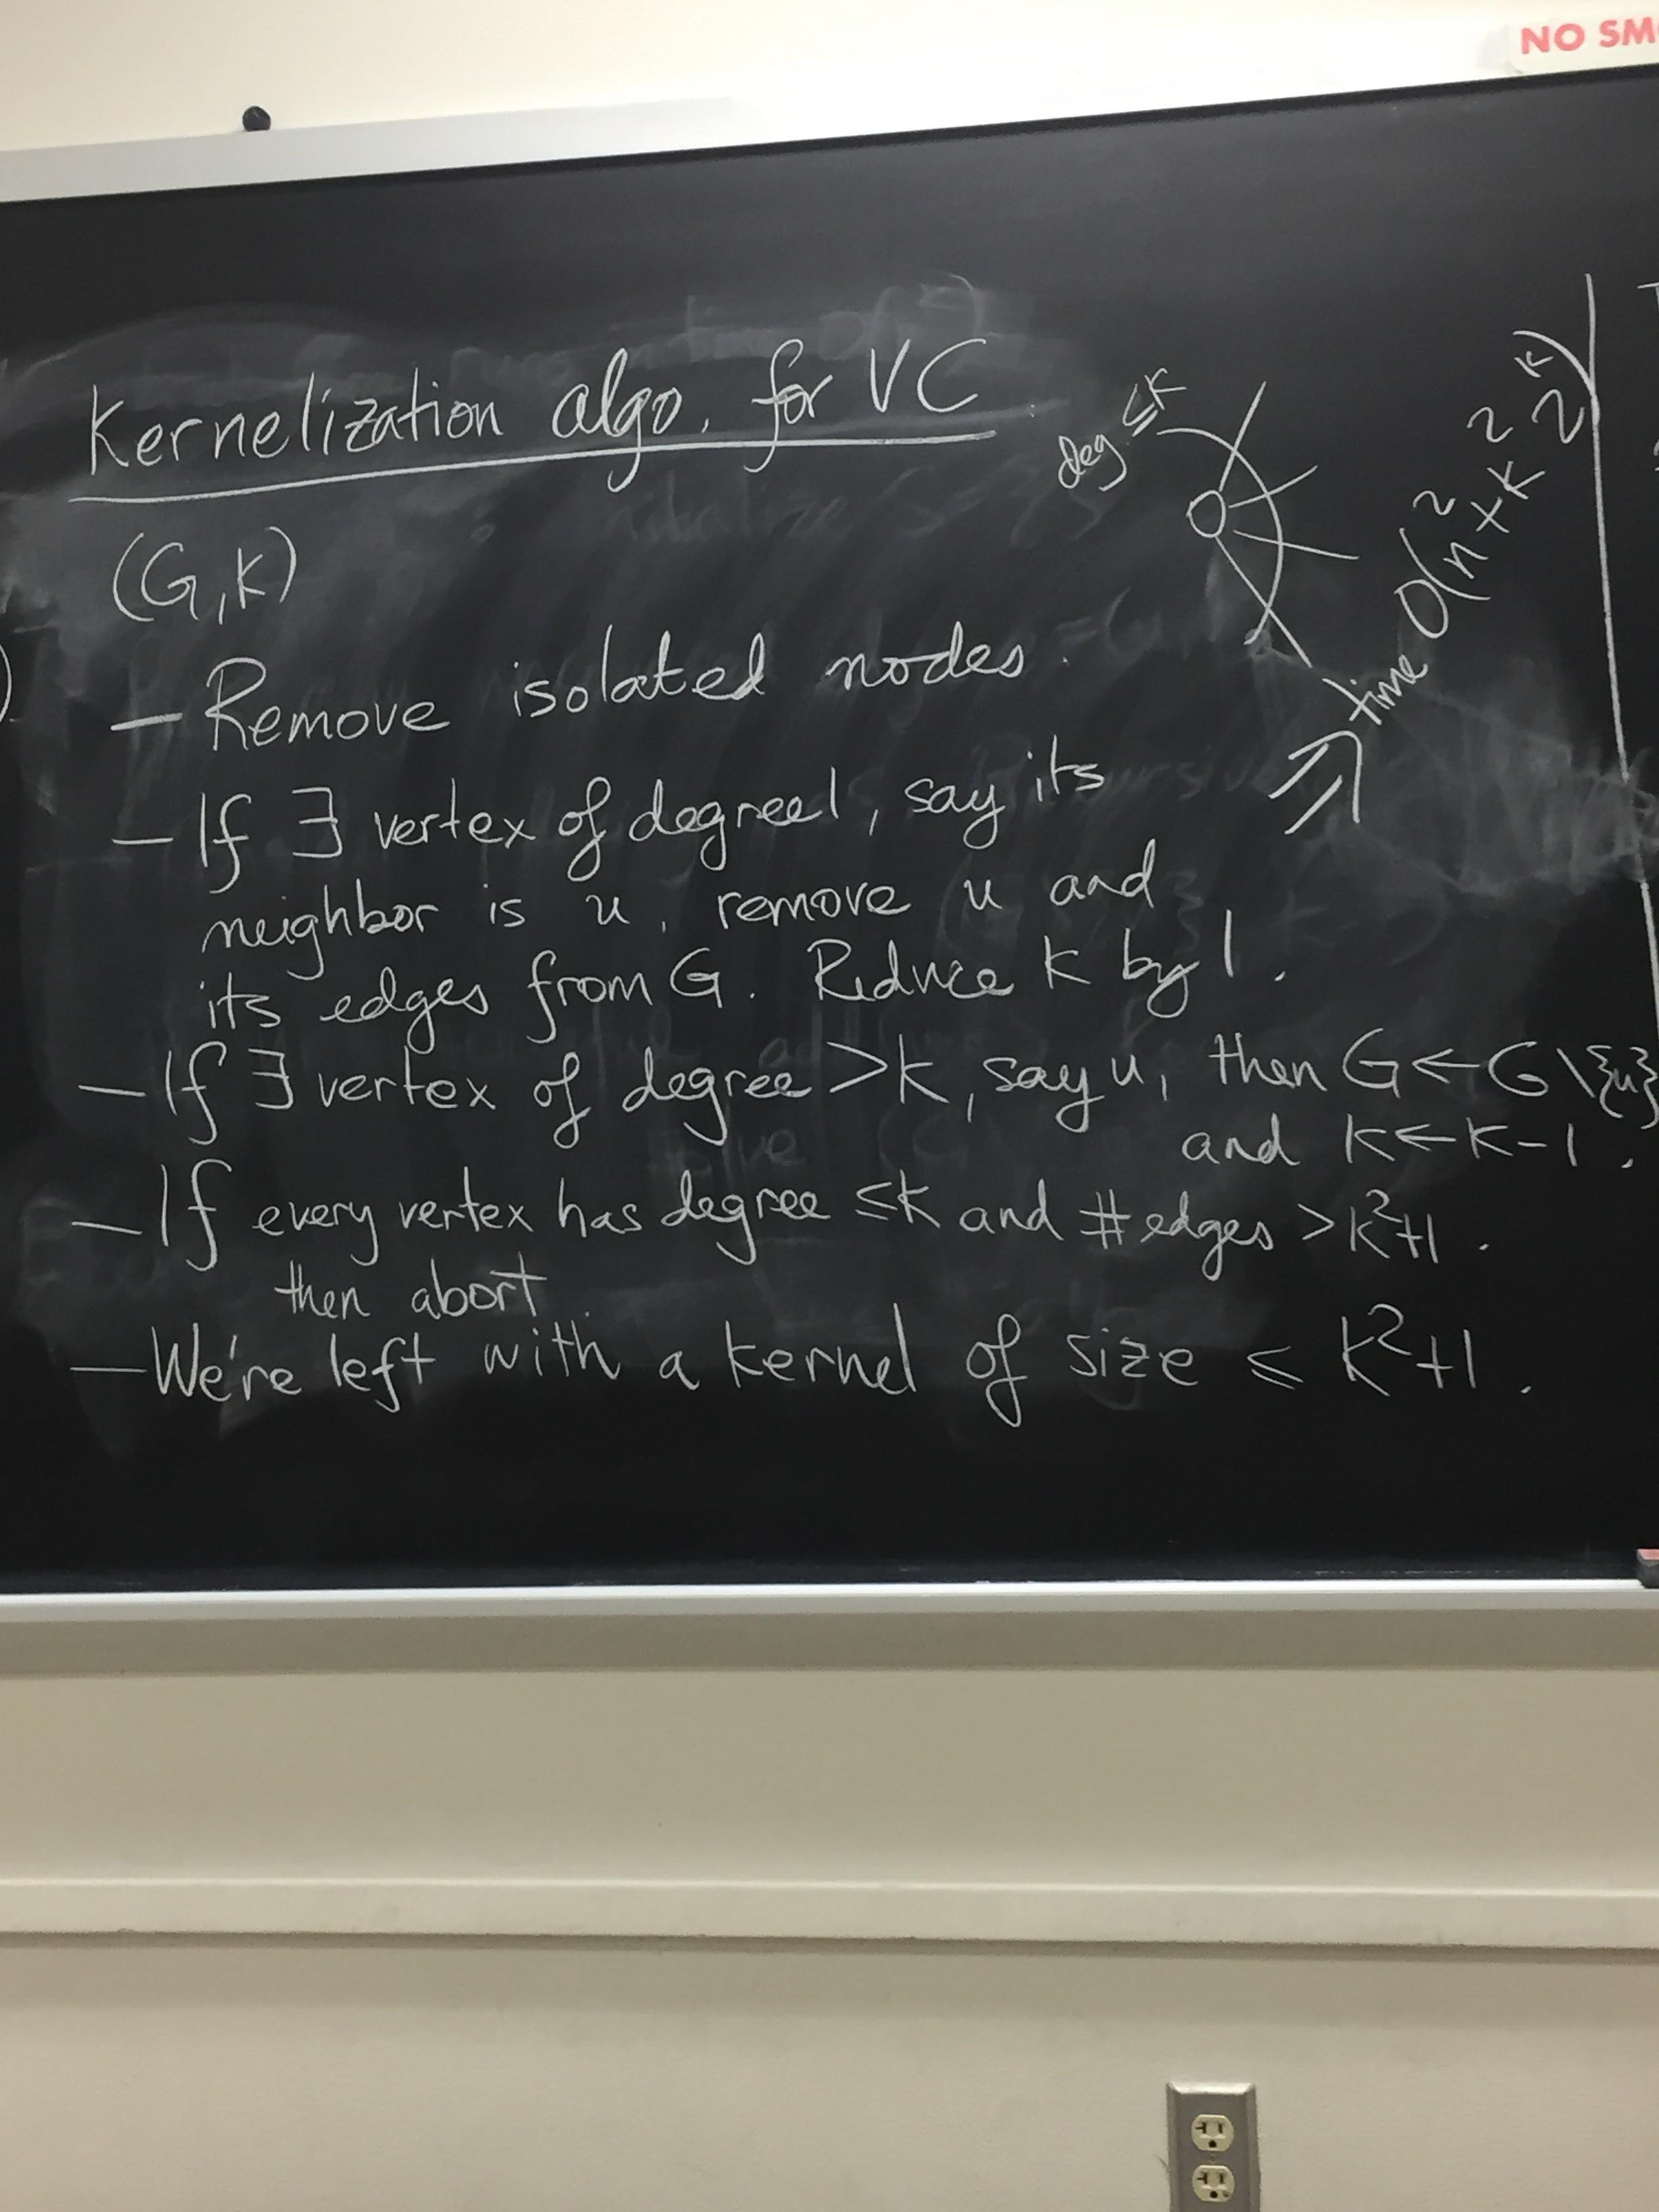 NO SM
Kernelization algo. for VC
deg ≤K
time O(n² + K² 2^K)
(G,K)
— Remove isolated nodes.
— If ∃ vertex of degree 1, say its
neighbor is u, remove u and
its edges from G. Reduce K by 1.
— If ∃ vertex of degree >K, say u, then G ← G \ {u}
and K ← K-1.
— If every vertex has degree ≤K and # edges >K²+1.
then abort
— We're left with a kernel of size ≤ K²+1.